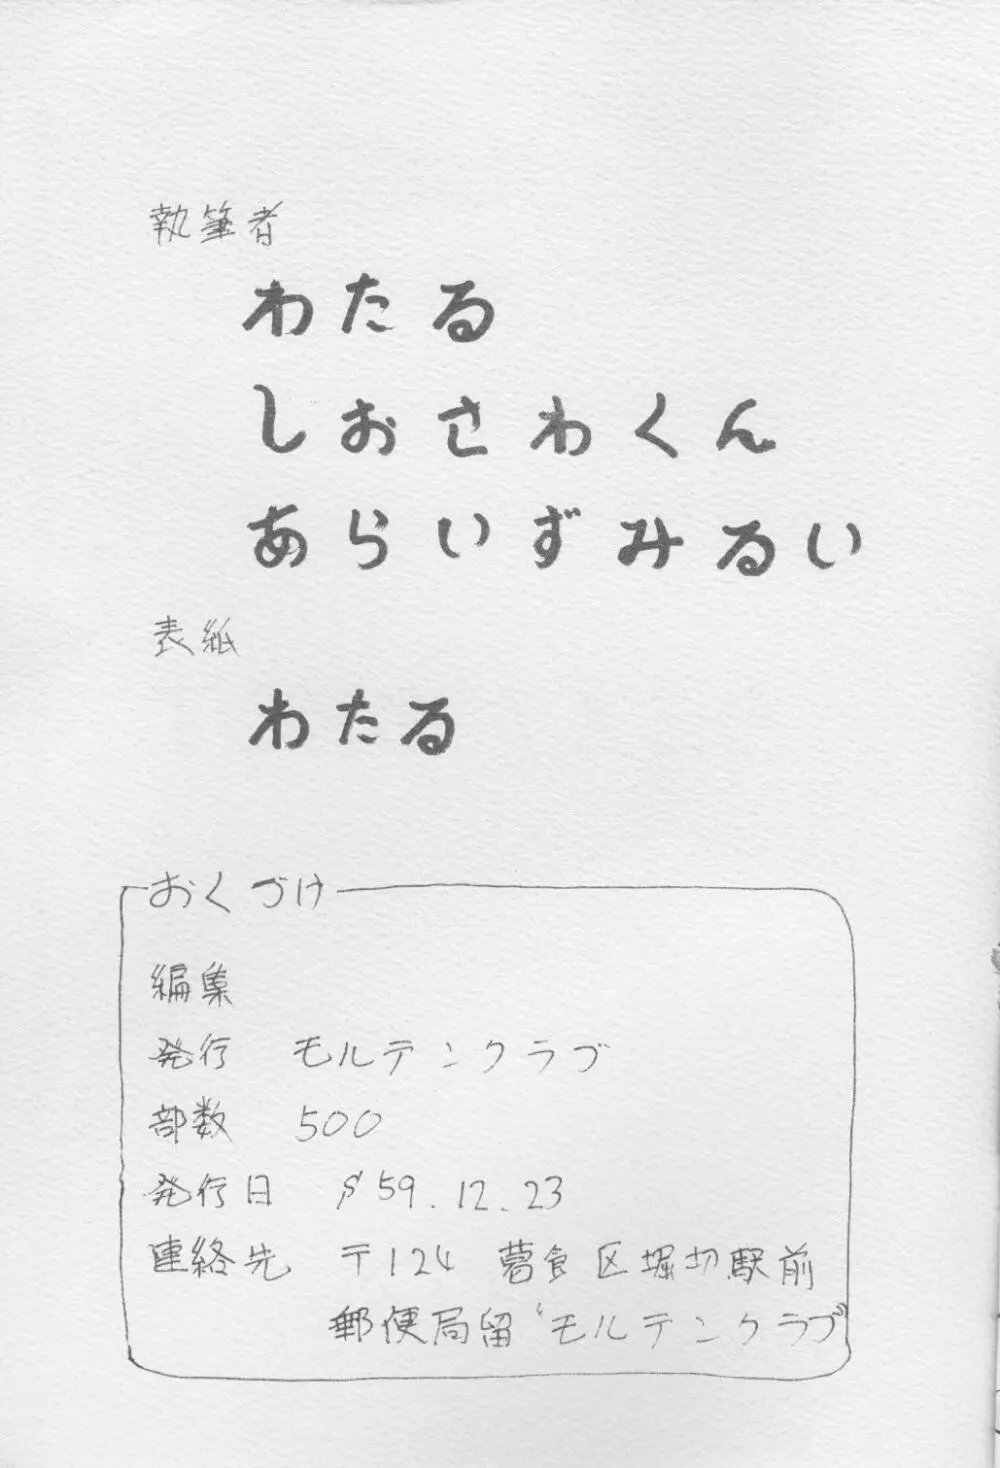 執筆者
わたる
しおさわくん
あらいずみるい
表紙
わたる
おくづけ
編集
発行 モルテンクラブ
部数 500
発行日 S59.12.23
連絡先 〒124 葛飾区堀切駅前
郵便局留“モルテンクラブ”